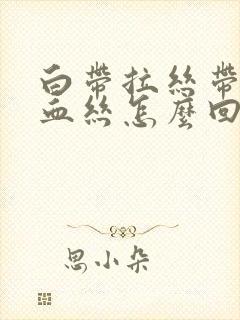 白帶拉絲帶
血絲怎麼回
思小朵